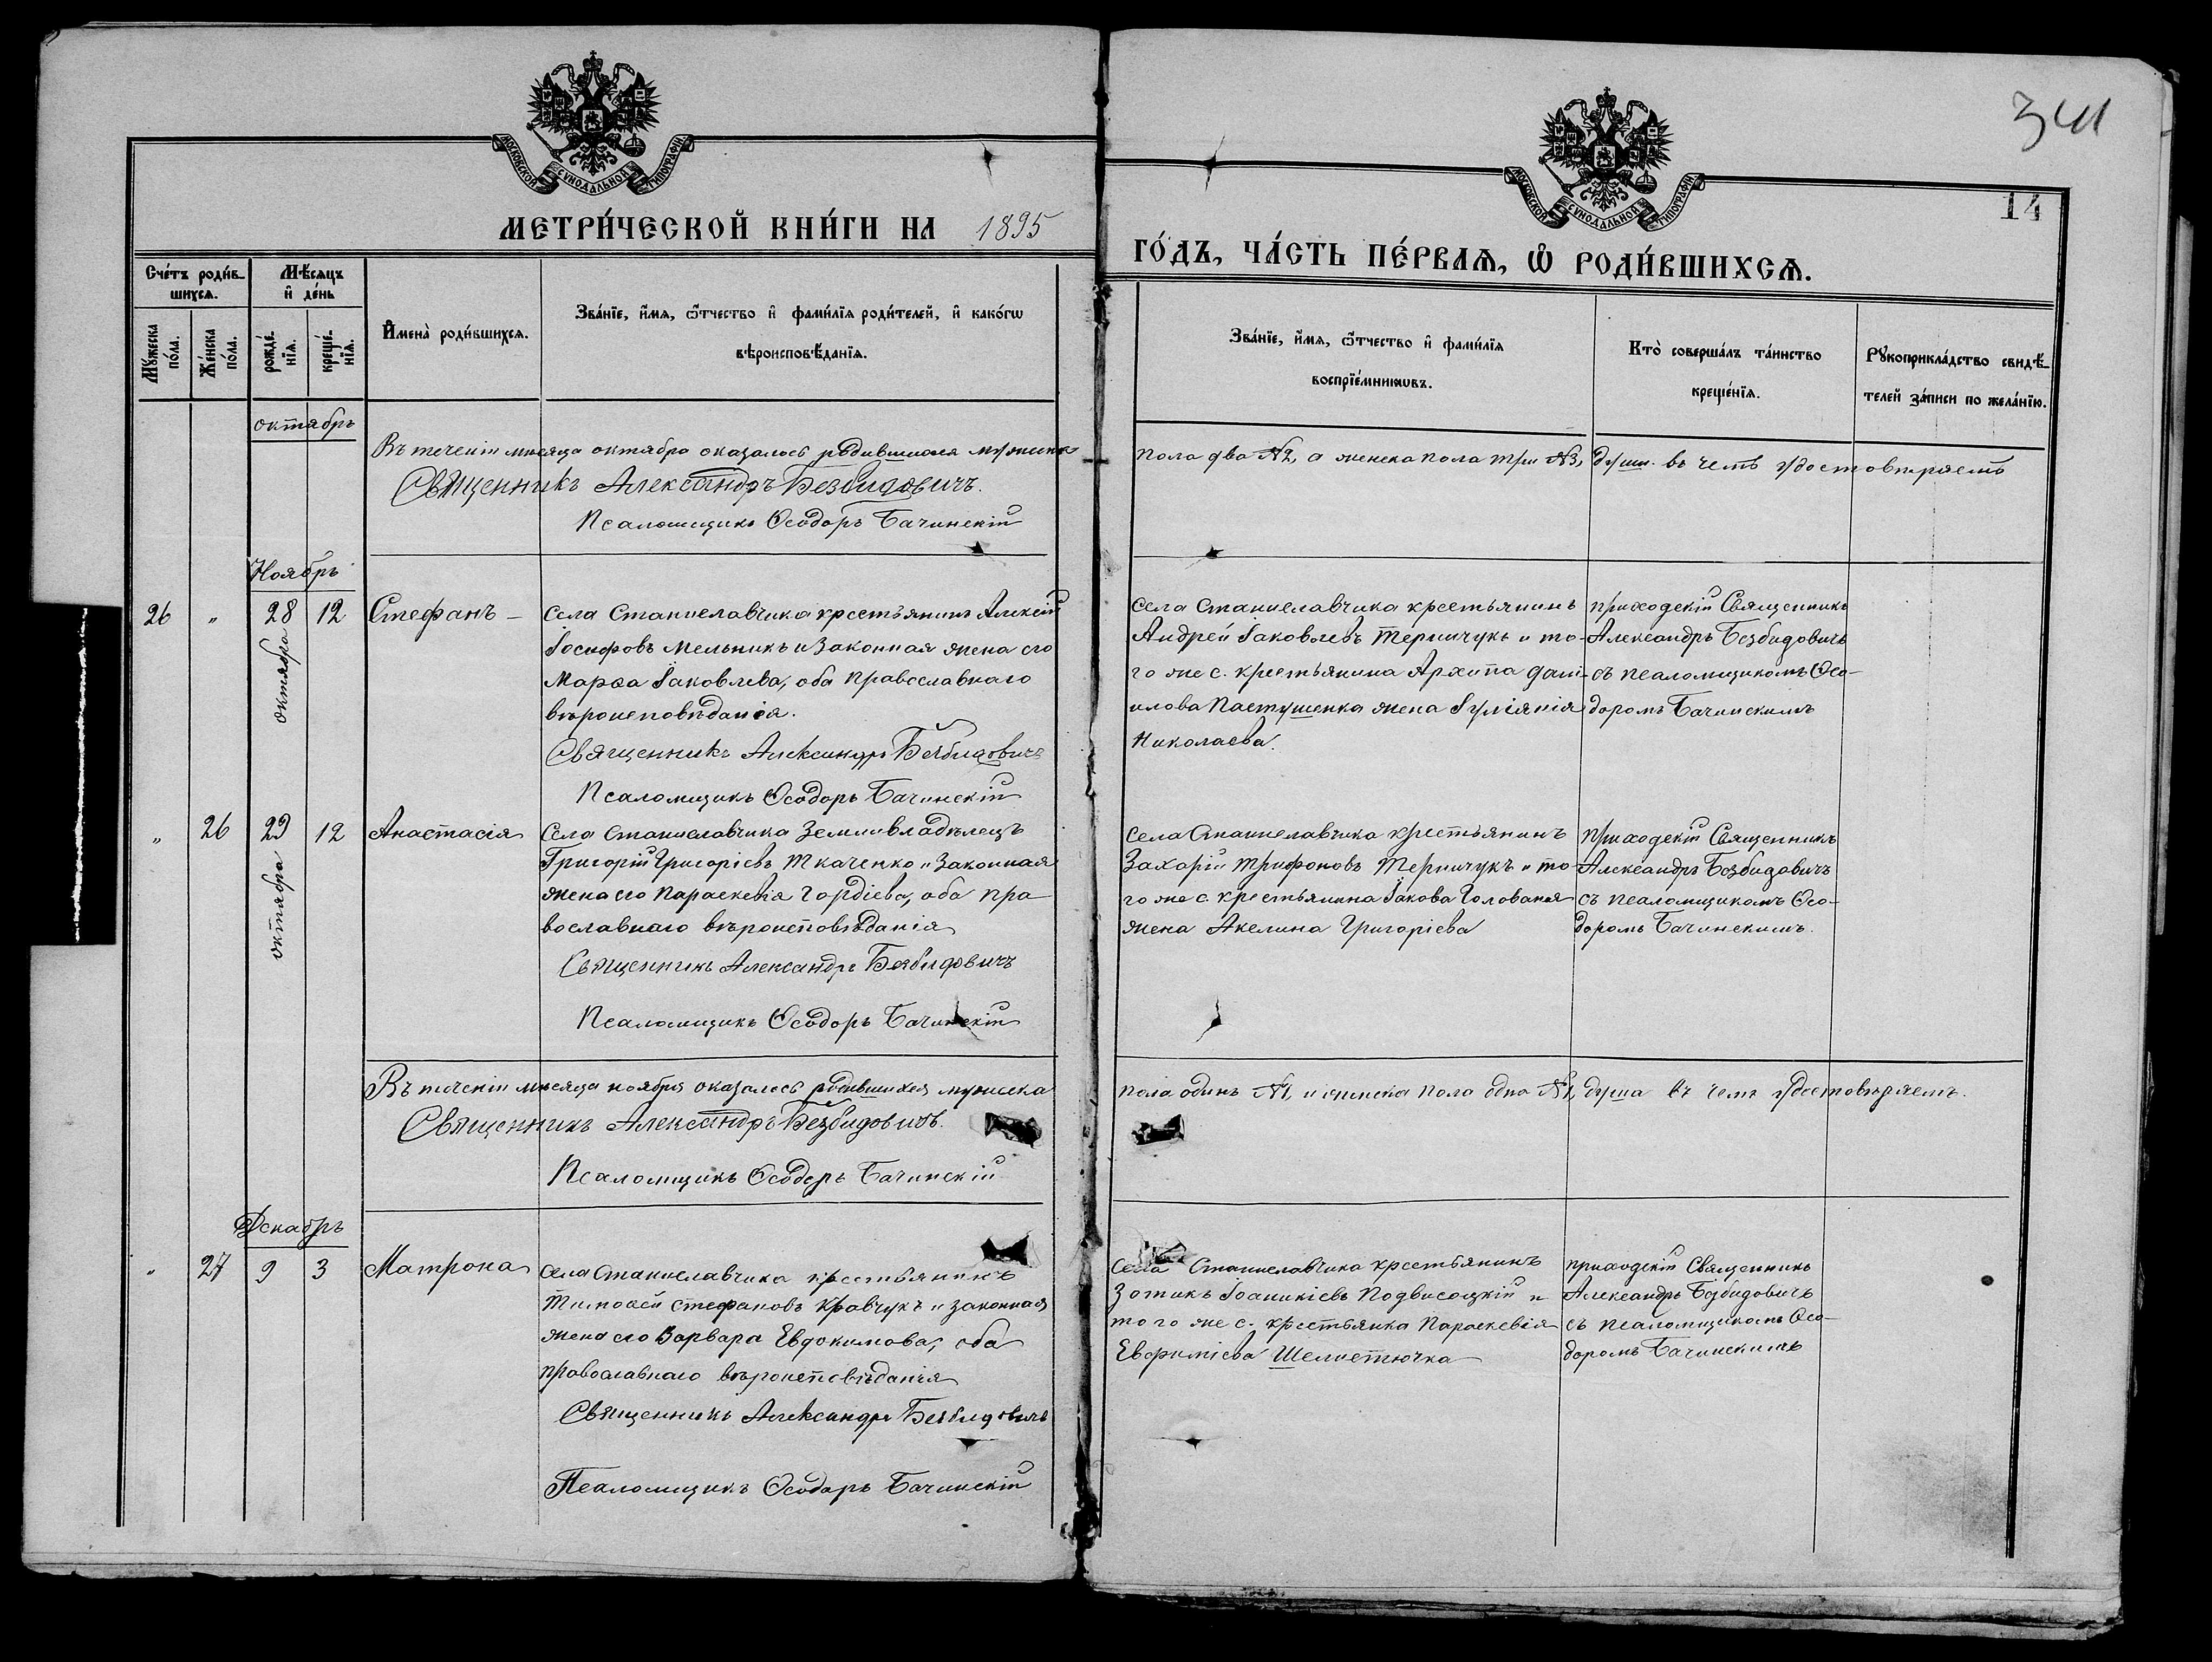 341
14
МОСКОВСКОЙ СѴНОДАЛЬНОЙ ТИПОГРАФІИ
МОСКОВСКОЙ СѴНОДАЛЬНОЙ ТИПОГРАФІИ
МЕТРИ́ЧЕСКОЙ КНИ́ГИ НА 1895
ГО́ДЪ, ЧА́СТЬ ПЕ́РВАѦ, Ѿ РОДИ́ВШИХСѦ.
Сче́тъ роди́в-
шихсѧ.
Мѣ́сѧцъ
и҆ де́нь
Мꙋ́жеска
по́ла.
Же́нска
по́ла.
рожде́-
нїѧ.
креще́-
нїѧ.
И҆мена̀ роди́вшихсѧ.
Зва́нїе, и҆́мѧ, ѻ҆́тчество и҆ фами́лїѧ роди́телей, и҆ како́гѡ
вѣроисповѣ́данїѧ.
Зва́нїе, и҆́мѧ, ѻ҆́тчество и҆ фами́лїѧ
воспрїе́мникѡвъ.
Кто̀ соверша́лъ та́инство
креще́нїѧ.
Рꙋкоприкла́дство свидѣ́-
телей за́писи по жела́нїю.
октябрь
Въ теченіи мѣсяца октября оказалось родившихся мужска
пола два №2, а женска пола три №3, души. въ чемъ удостовѣряемъ
Священникъ Александръ Безбидовичъ.
Псаломщикъ Ѳеодоръ Бачинскій
Ноябрь
26 " 28 октября 12 Стефанъ –
Села Станиславчика крестьянинъ Алексій
Іосифовъ Мельникъ и законная жена его
Марѳа Іаковлева, оба православнаго
вѣроисповѣданія.
Священникъ Александръ Безбидовичъ
Псаломщикъ Ѳеодоръ Бачинскій
Села Станиславчика крестьянинъ
Андрей Іаковлевъ Терничукъ и то-
го же с. крестьянина Архипа Дані-
илова Пастушенка жена Іуліянія
Николаева.
приходскій Священникъ
Александръ Безбидовичъ
съ псаломщикомъ Ѳео-
доромъ Бачинскимъ
" 26 29 октября 12 Анастасія
Села Станиславчика Землевладѣлецъ
Григорій Григоріевъ Ткаченко и законная
жена его Параскевія Гордіева, оба пра-
вославнаго вѣроисповѣданія
Священникъ Александръ Безбидовичъ
Псаломщикъ Ѳеодоръ Бачинскій
Села Станиславчика крестьянинъ
Захарій Трифоновъ Терничукъ и то-
го же с. крестьянина Іакова Голованя
жена Акелина Григоріева
приходскій Священникъ
Александръ Безбидовичъ
съ псаломщикомъ Ѳео-
доромъ Бачинскимъ.
Въ теченіи мѣсяца ноября оказалось родившихся мужска
пола одинъ №1, и женска пола одна №1, душа въ чемъ удостовѣряемъ.
Священникъ Александръ Безбидовичъ.
Псаломщикъ Ѳеодоръ Бачинскій
Декабрь
" 27 9 3 Матрона
Села Станиславчика крестьянинъ
Тимоѳей Стефановъ Кравчукъ и законная
жена его Варвара Евдокимова, оба
православнаго вѣроисповѣданія
Священникъ Александръ Безбидовичъ
Псаломщикъ Ѳеодоръ Бачинскій
Села Станиславчика крестьянинъ
Зотикъ Іоаникіевъ Подвисоцкій и
того же с. крестьянка Параскевія
Евфиміева Шелистючка
приходскій Священникъ
Александръ Безбидовичъ
съ псаломщикомъ Ѳео-
доромъ Бачинскимъ